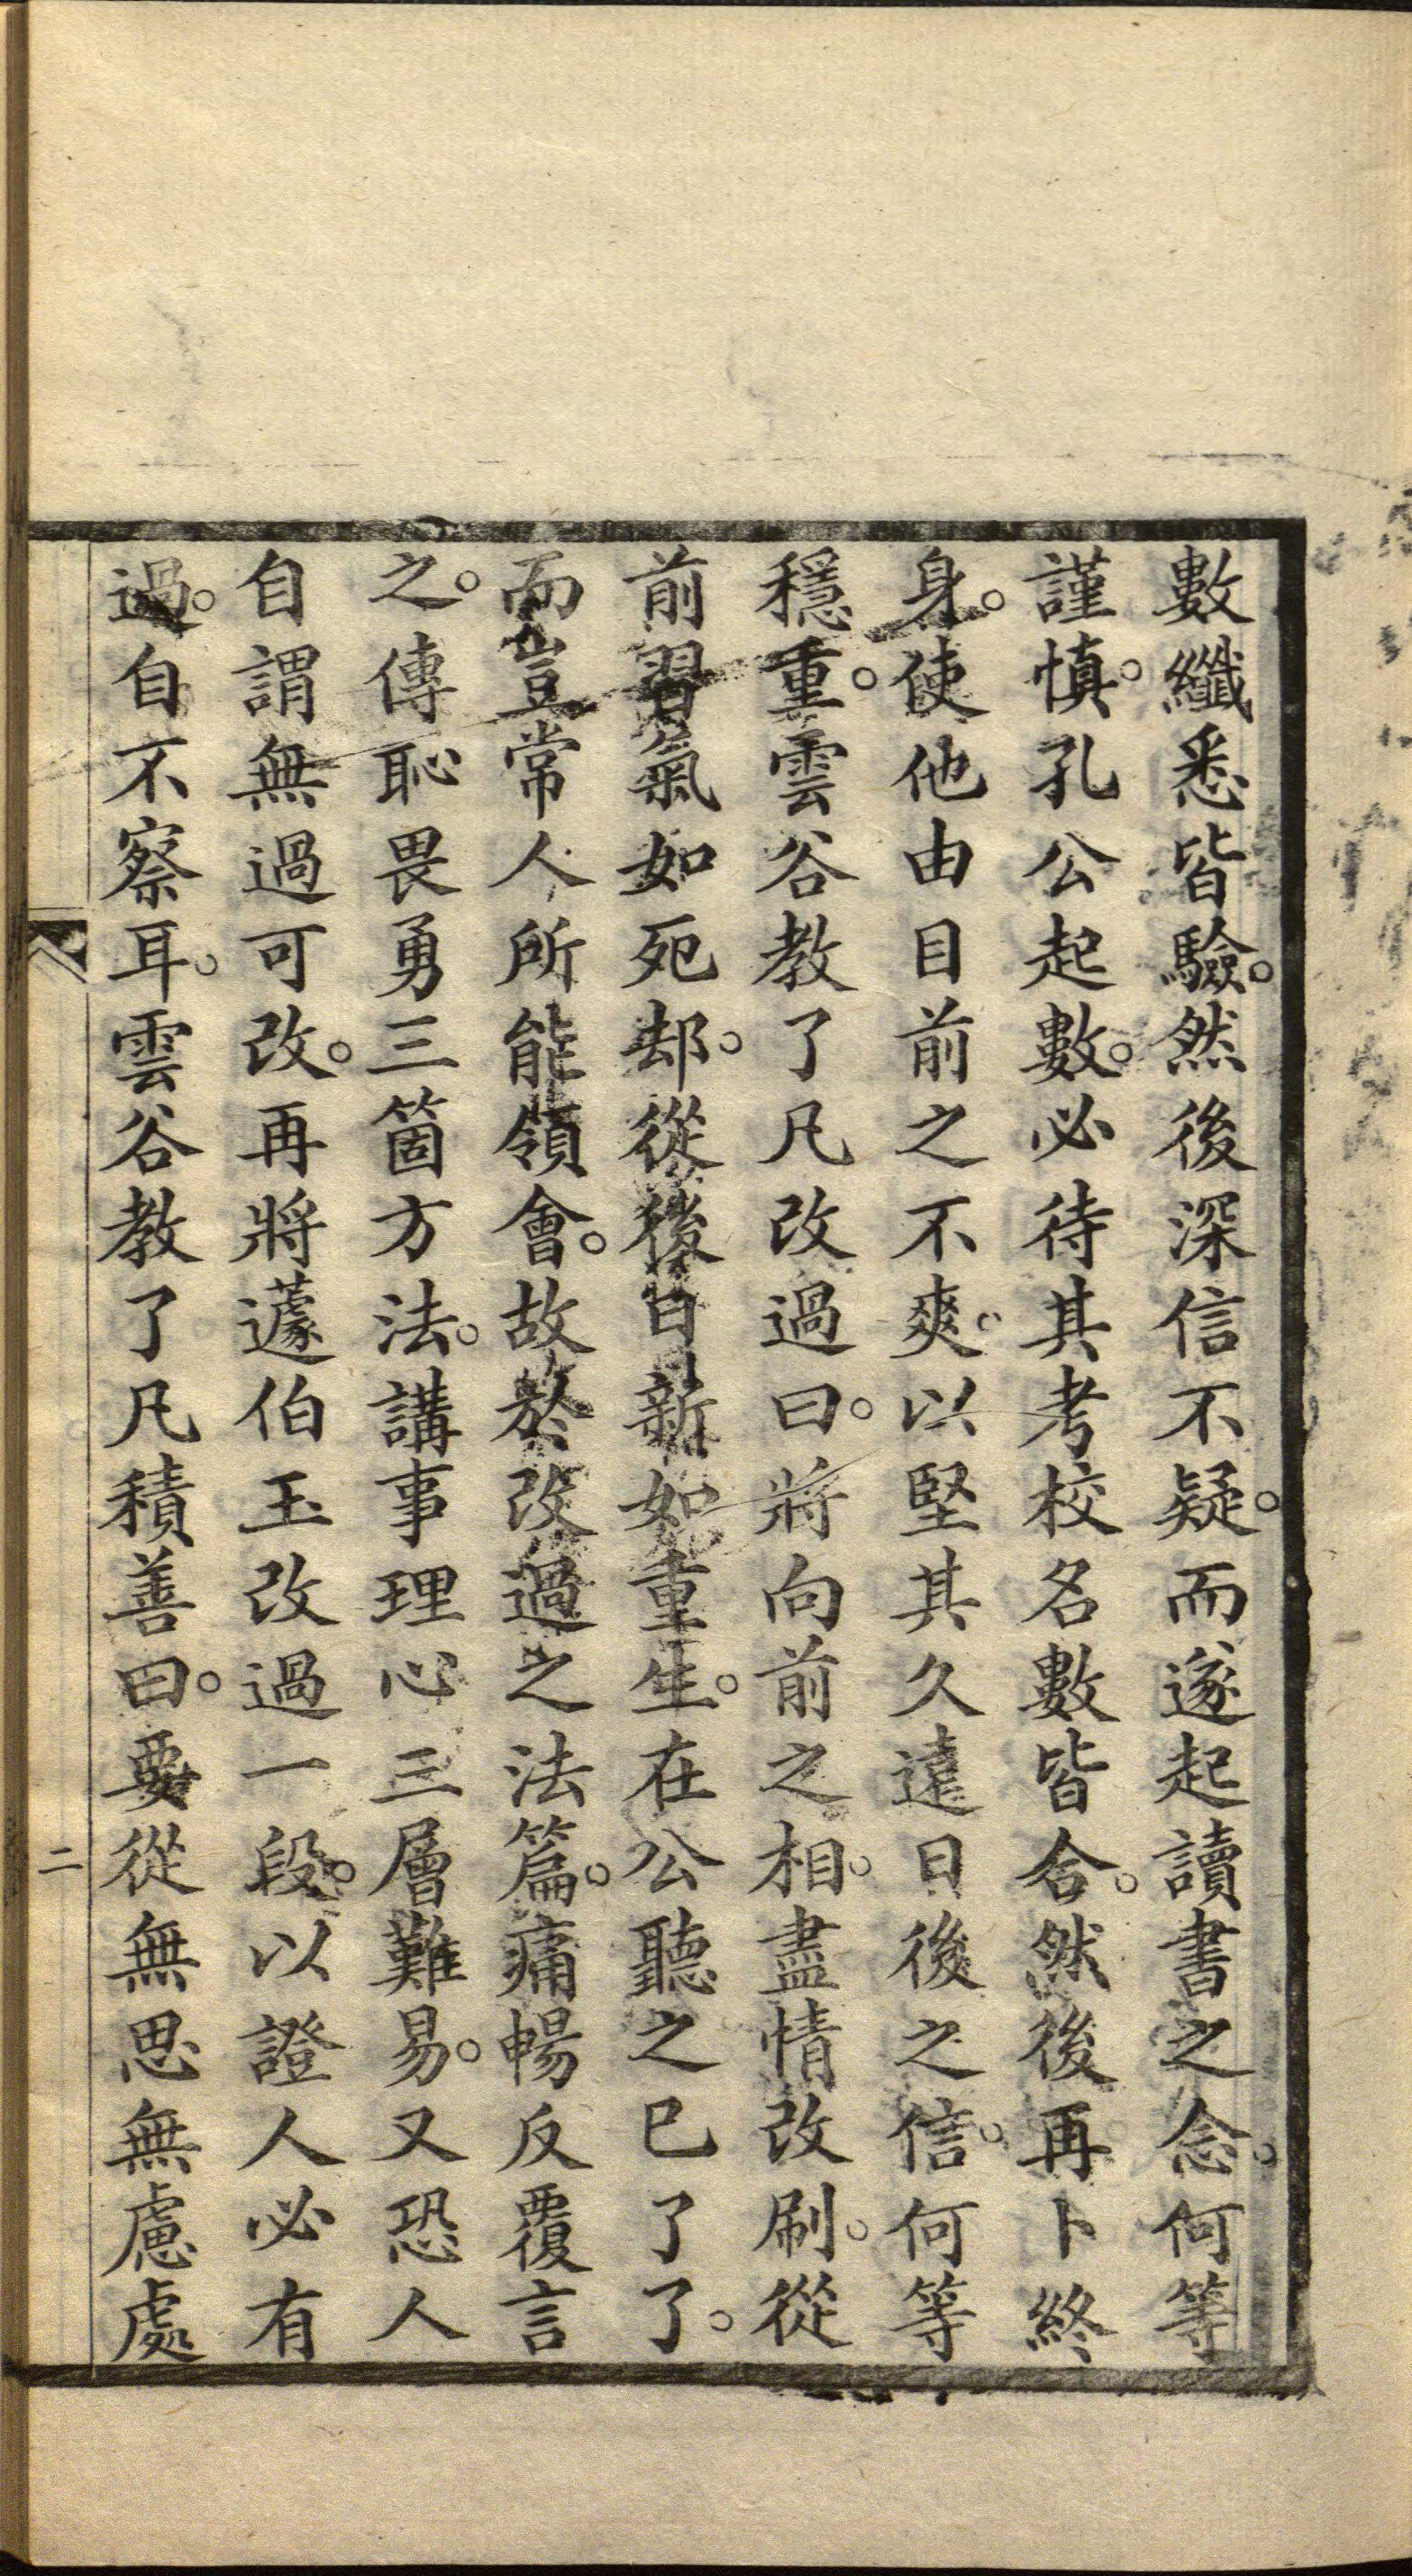 數纖悉皆驗。然後深信不疑。而遂起讀書之念。何等
謹慎。孔公起數。必待其考校名數皆合。然後再卜終
身。使他由目前之不爽。以堅其久遠日後之信。何等
穩重。雲谷教了凡改過曰。將向前之相。盡情改刷。從
前習氣如死却。從後日新如重生。在公聽之已了了。
而豈常人所能領會。故於改過之法篇。痛暢反覆言
之。傳恥畏勇三箇方法。講事理心三層難易。又恐人
自謂無過可改。再將蘧伯玉改過一段。以證人必有
過。自不察耳。雲谷教了凡積善曰。要從無思無慮處
二